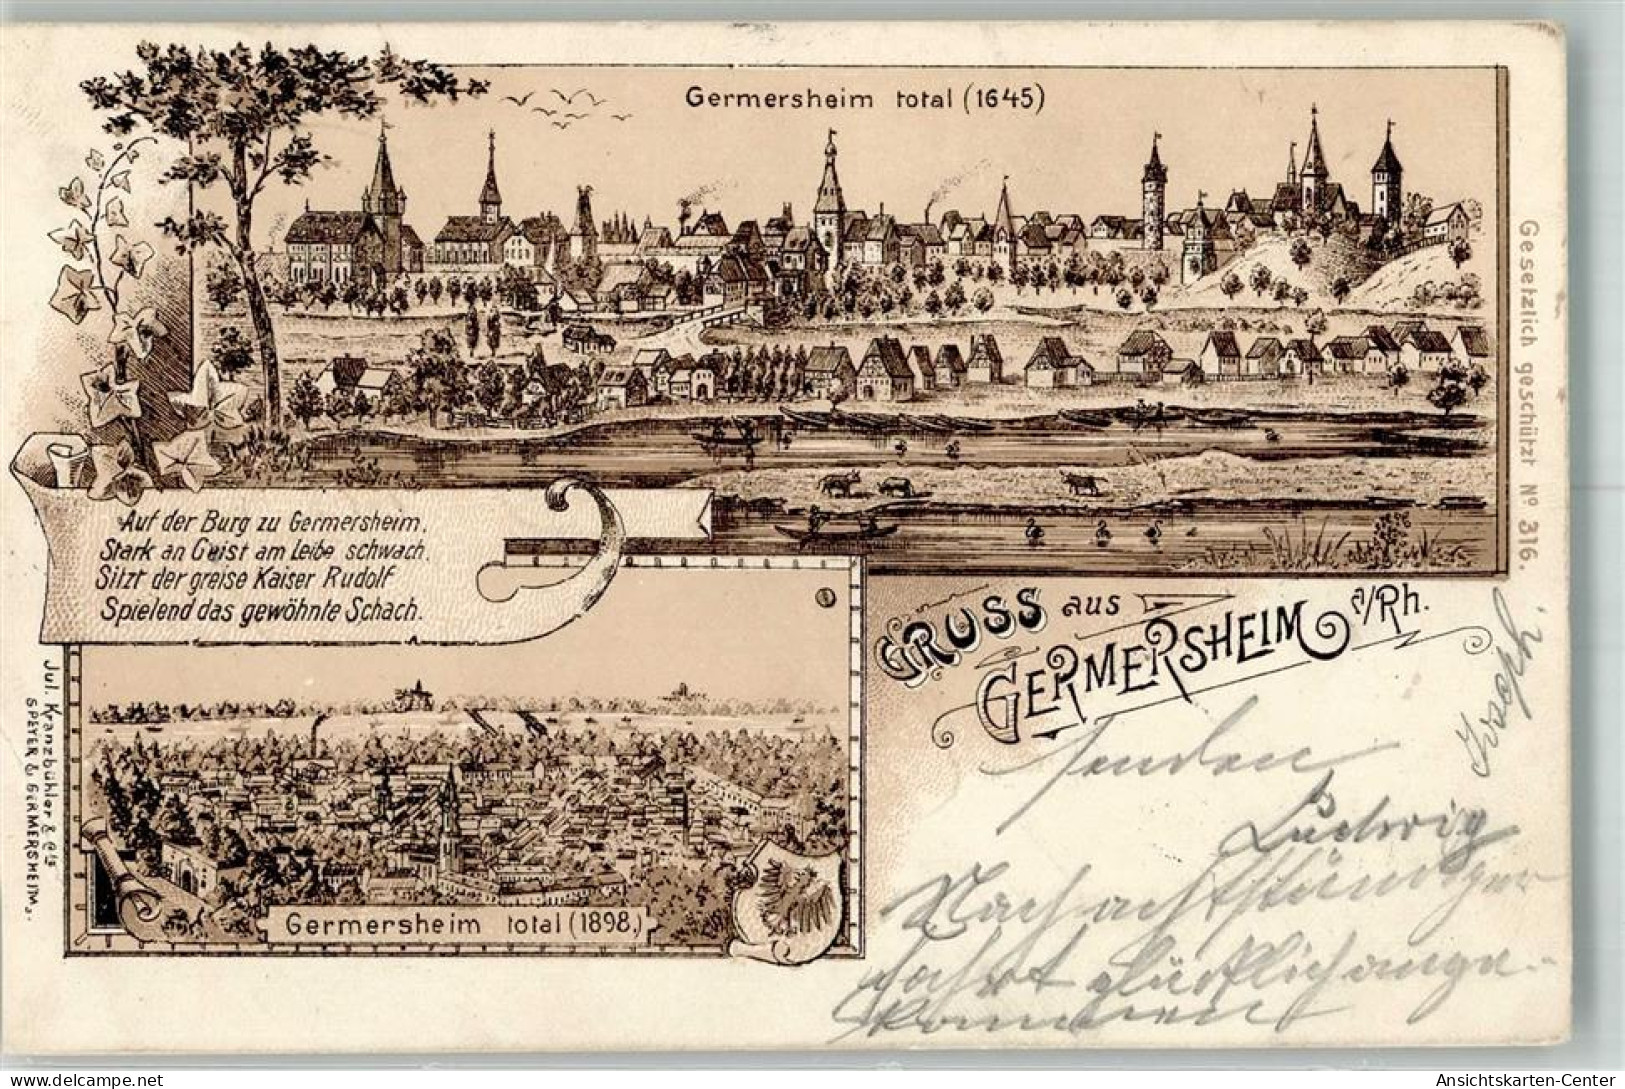 Germersheim total (1645)
Gesetzlich geschützt No 316.
Auf der Burg zu Germersheim,
Stark an Geist am Leibe schwach,
Sitzt der greise Kaiser Rudolf
Spielend das gewöhnte Schach.
GRUSS aus
GERMERSHEIM a/Rh.
Jul. Kranzbühler & Cie
SPEYER & GERMERSHEIM.
Germersheim total (1898.)
senden
Ludwig
Joseph.
Nach achtstündiger
fahrt glücklich ange-
kommen
oldthing.de
Ansichtskarten-Center